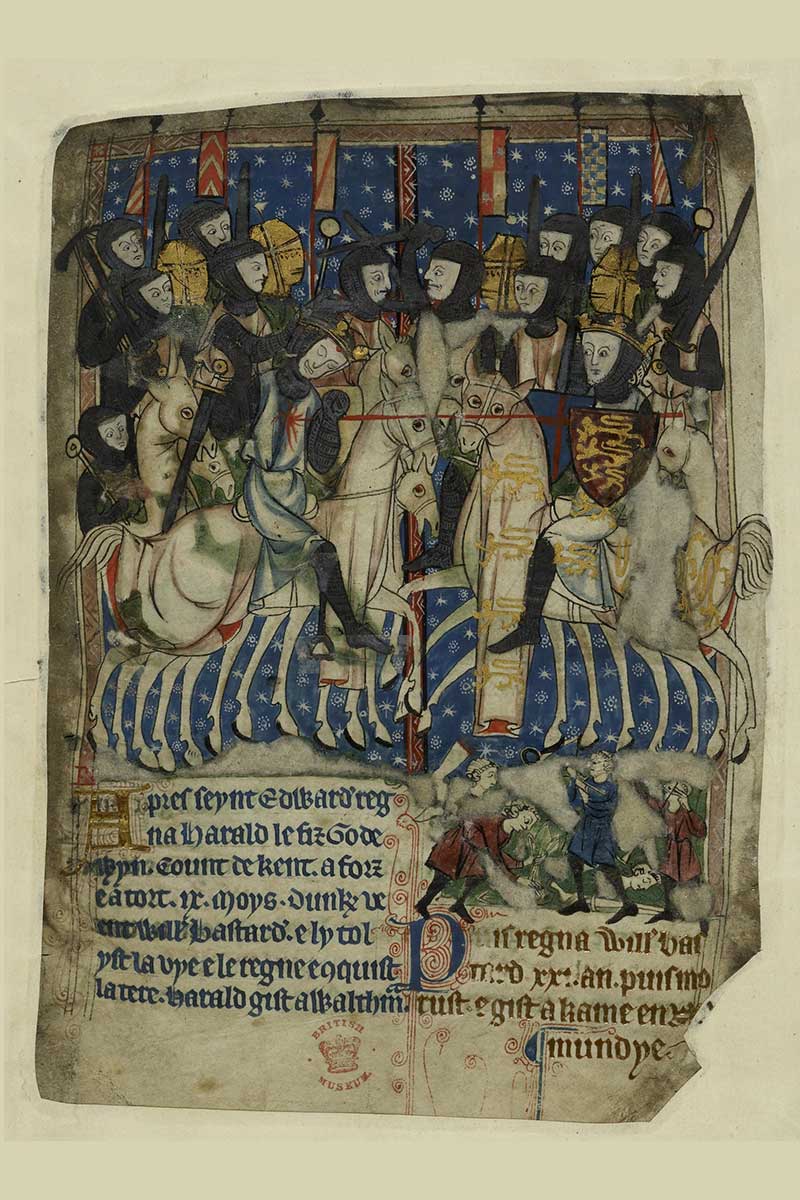 Apres seynt Edward reg
na Harald le fiz Gode
wyn. Count de kent. a forz
e a tort. ix. Moys. dunk ve
ent will' bastard. e ly tol
yst la vye e le regne enquist
la tere. Harald gist a Walthm.
Puis regna Will' bas
tard xx. an. puis mo
rust. e gist a kame en
mundye.
BRITISH
MUSEUM